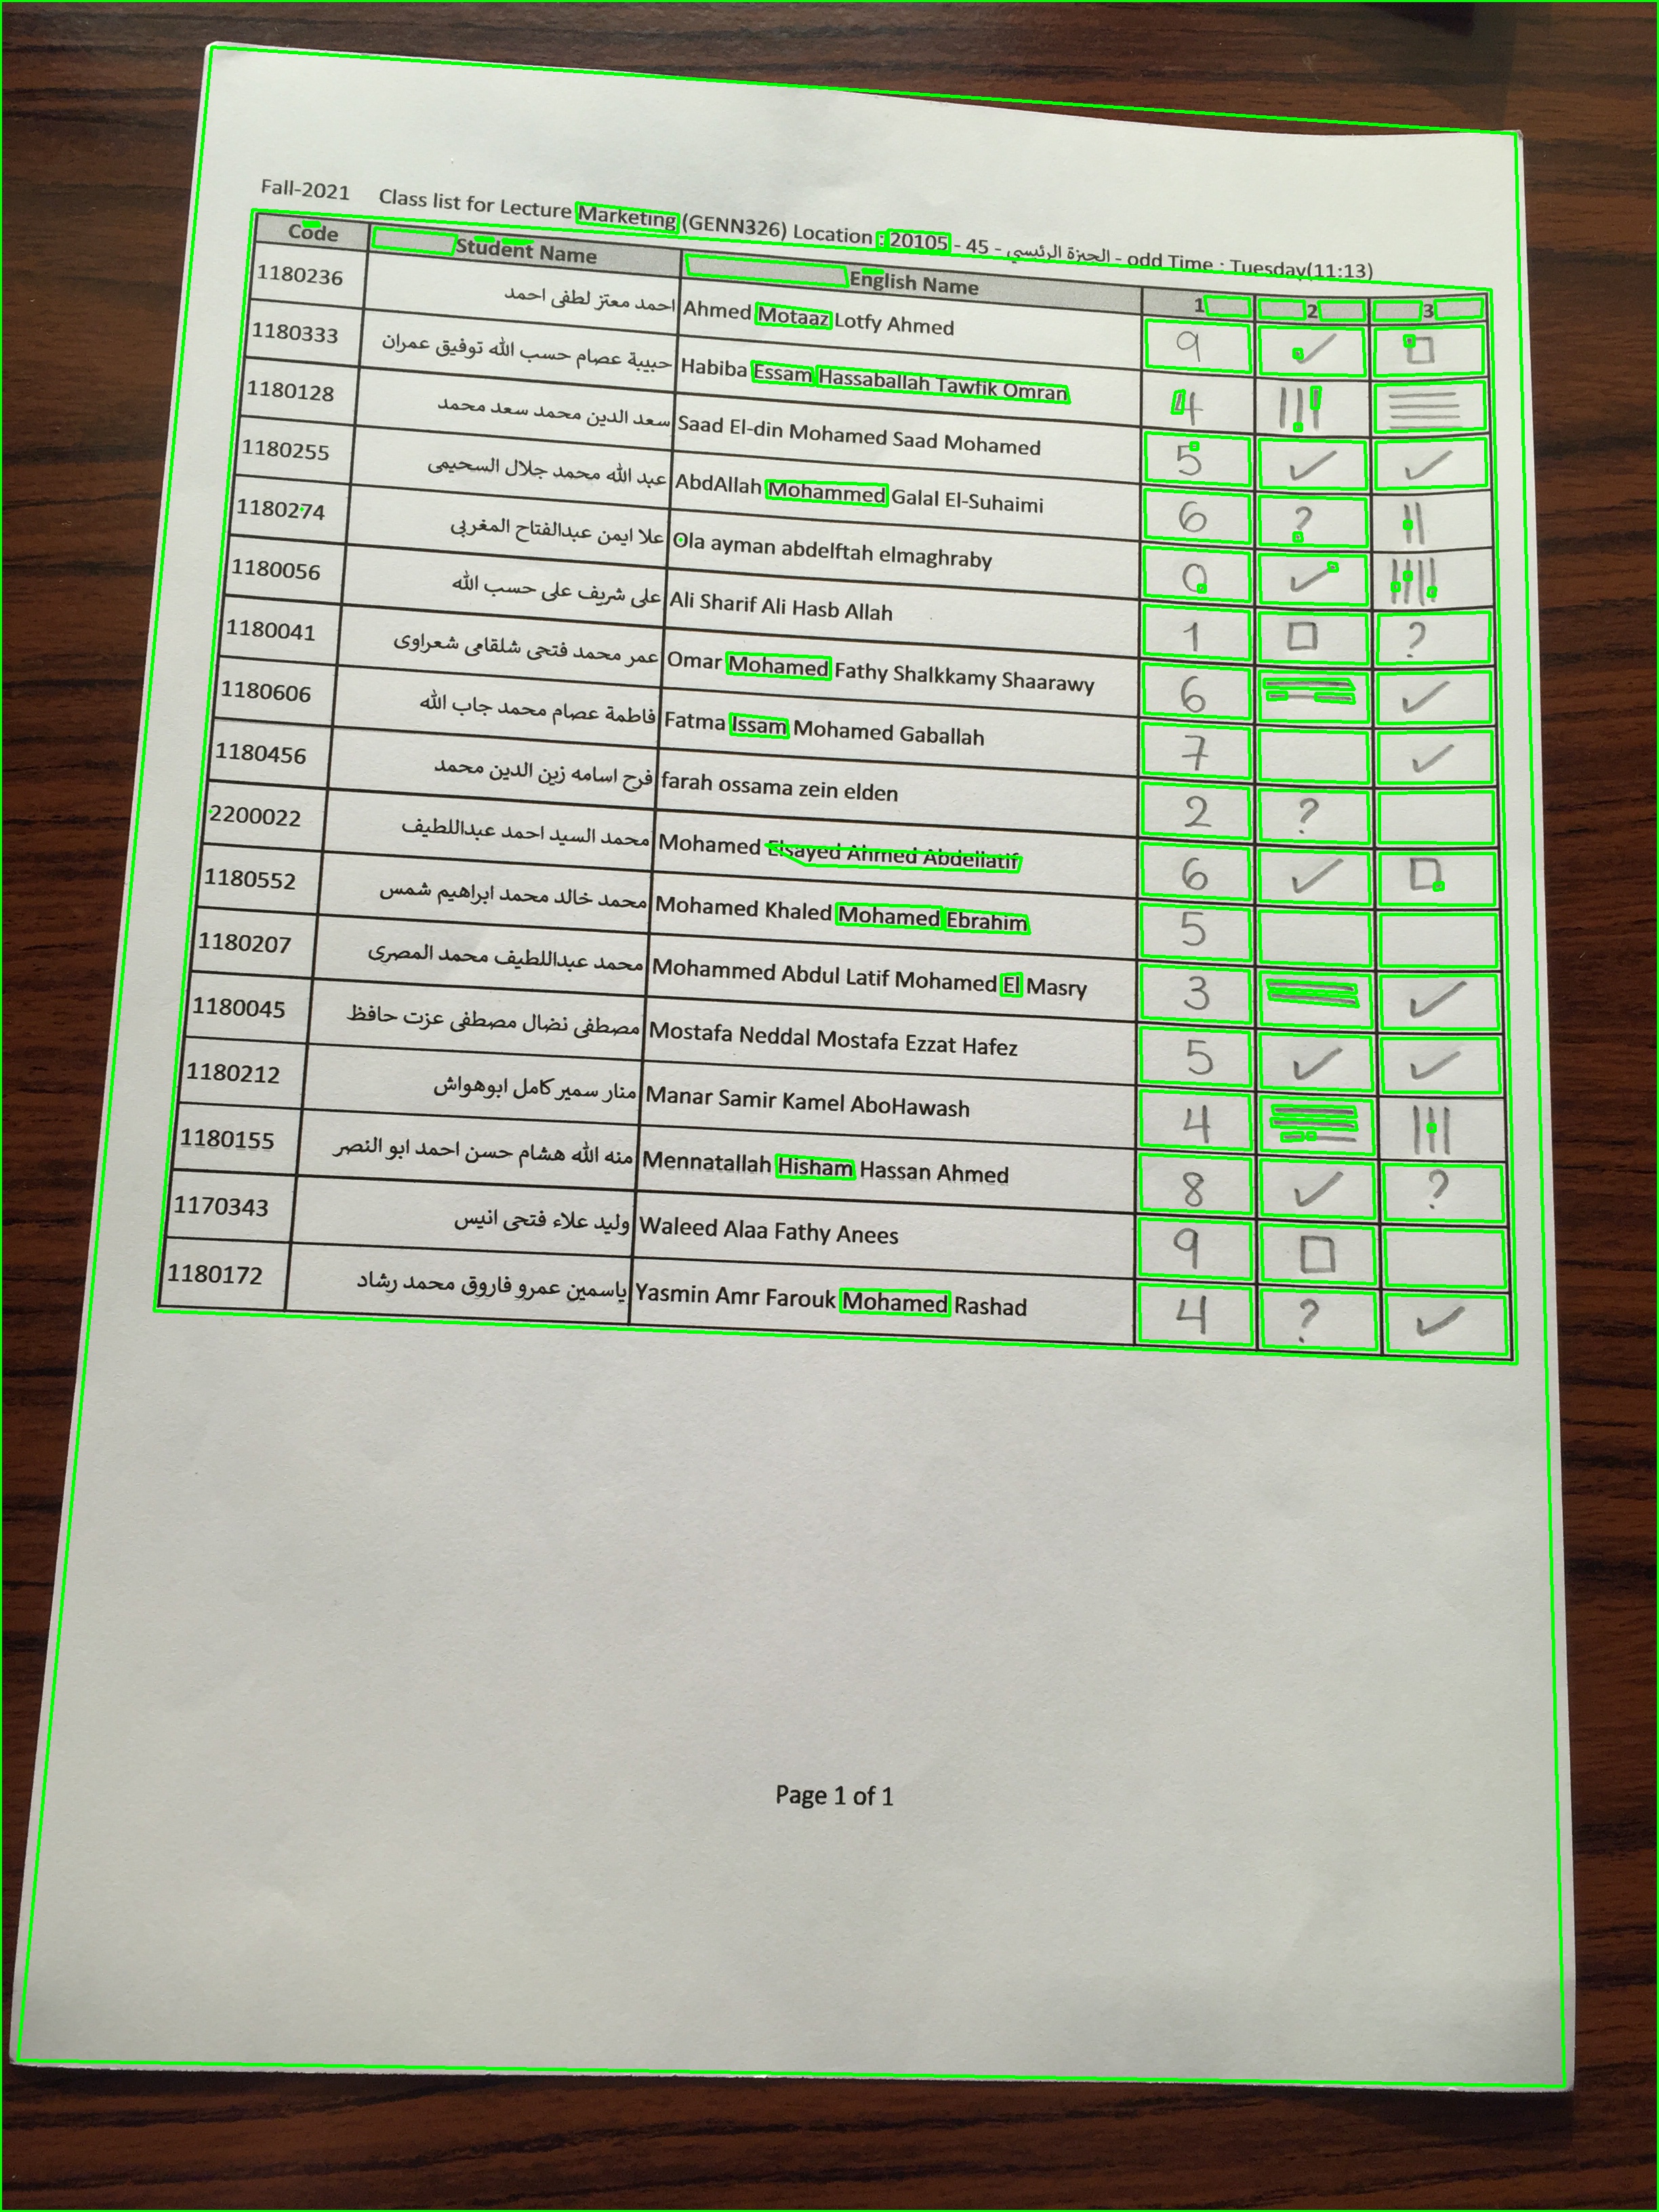 Fall-2021 Class list for Lecture Marketing (GENN326) Location : 20105 - 45 - الجيزة الرئسي - odd Time : Tuesday(11:13)
Code Student Name English Name 1 2 3
1180236 احمد معتز لطفى احمد Ahmed Motaaz Lotfy Ahmed 9 ✓ □
1180333 حبيبة عصام حسب الله توفيق عمران Habiba Essam Hassaballah Tawfik Omran 4 ||| ☰
1180128 سعد الدين محمد سعد محمد Saad El-din Mohamed Saad Mohamed 5 ✓ ✓
1180255 عبد الله محمد جلال السحيمى AbdAllah Mohammed Galal El-Suhaimi 6 ? ||
1180274 علا ايمن عبدالفتاح المغربى Ola ayman abdelftah elmaghraby 0 ✓ ||||
1180056 على شريف على حسب الله Ali Sharif Ali Hasb Allah 1 □ ?
1180041 عمر محمد فتحى شلقامى شعراوى Omar Mohamed Fathy Shalkkamy Shaarawy 6 = ✓
1180606 فاطمة عصام محمد جاب الله Fatma Issam Mohamed Gaballah 7 ✓
1180456 فرح اسامه زين الدين محمد farah ossama zein elden 2 ?
2200022 محمد السيد احمد عبداللطيف Mohamed Elsayed Ahmed Abdellatif 6 ✓ □
1180552 محمد خالد محمد ابراهيم شمس Mohamed Khaled Mohamed Ebrahim 5
1180207 محمد عبداللطيف محمد المصرى Mohammed Abdul Latif Mohamed El Masry 3 = ✓
1180045 مصطفى نضال مصطفى عزت حافظ Mostafa Neddal Mostafa Ezzat Hafez 5 ✓ ✓
1180212 منار سمير كامل ابوهواش Manar Samir Kamel AboHawash 4 ☰ |||
1180155 منه الله هشام حسن احمد ابو النصر Mennatallah Hisham Hassan Ahmed 8 ✓ ?
1170343 وليد علاء فتحى انيس Waleed Alaa Fathy Anees 9 □
1180172 ياسمين عمرو فاروق محمد رشاد Yasmin Amr Farouk Mohamed Rashad 4 ? ✓
Page 1 of 1